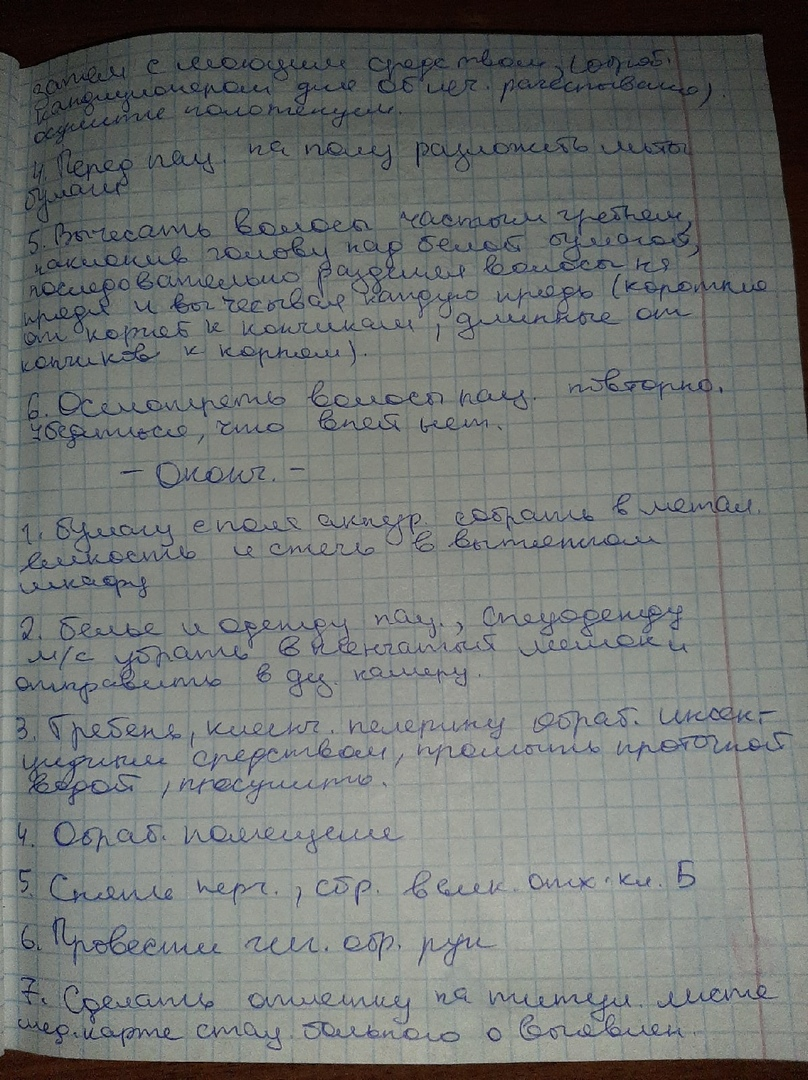 затем с моющим средством, (обраб.
кандиционером для облег. расчесывания).
осушите полотенцем.
4. Перед пац. на полу разложить листы
бумаги
5. Вычесать волосы частым гребнем,
наклонив голову над белой бумагой,
последовательно разделяя волосы на
пряди и вычесывая каждую прядь (короткие
от корней к кончикам, длинные от
кончиков к корням).
6. Осмотреть волосы пац. повторно.
Убедиться, что вшей нет.
- Оконч. -
1. Бумагу с пола аккур. собрать в метал.
емкость и сжечь в вытяжном
шкафу
2. Белье и одежду пац., спецодежду
м/с убрать в клеенчатый мешок и
отправить в дез. камеру.
3. Гребень, клеенч. пелерину обраб. инсек-
ицидным средством, промыть проточной
водой, просушить.
4. Обраб. помещение
5. Снять перч., сбр. в емк. отх. кл. Б
6. Провести гиг. обр. рук
7. Сделать отметку на титул. листе
мед. карте стац. больного о выявлен.